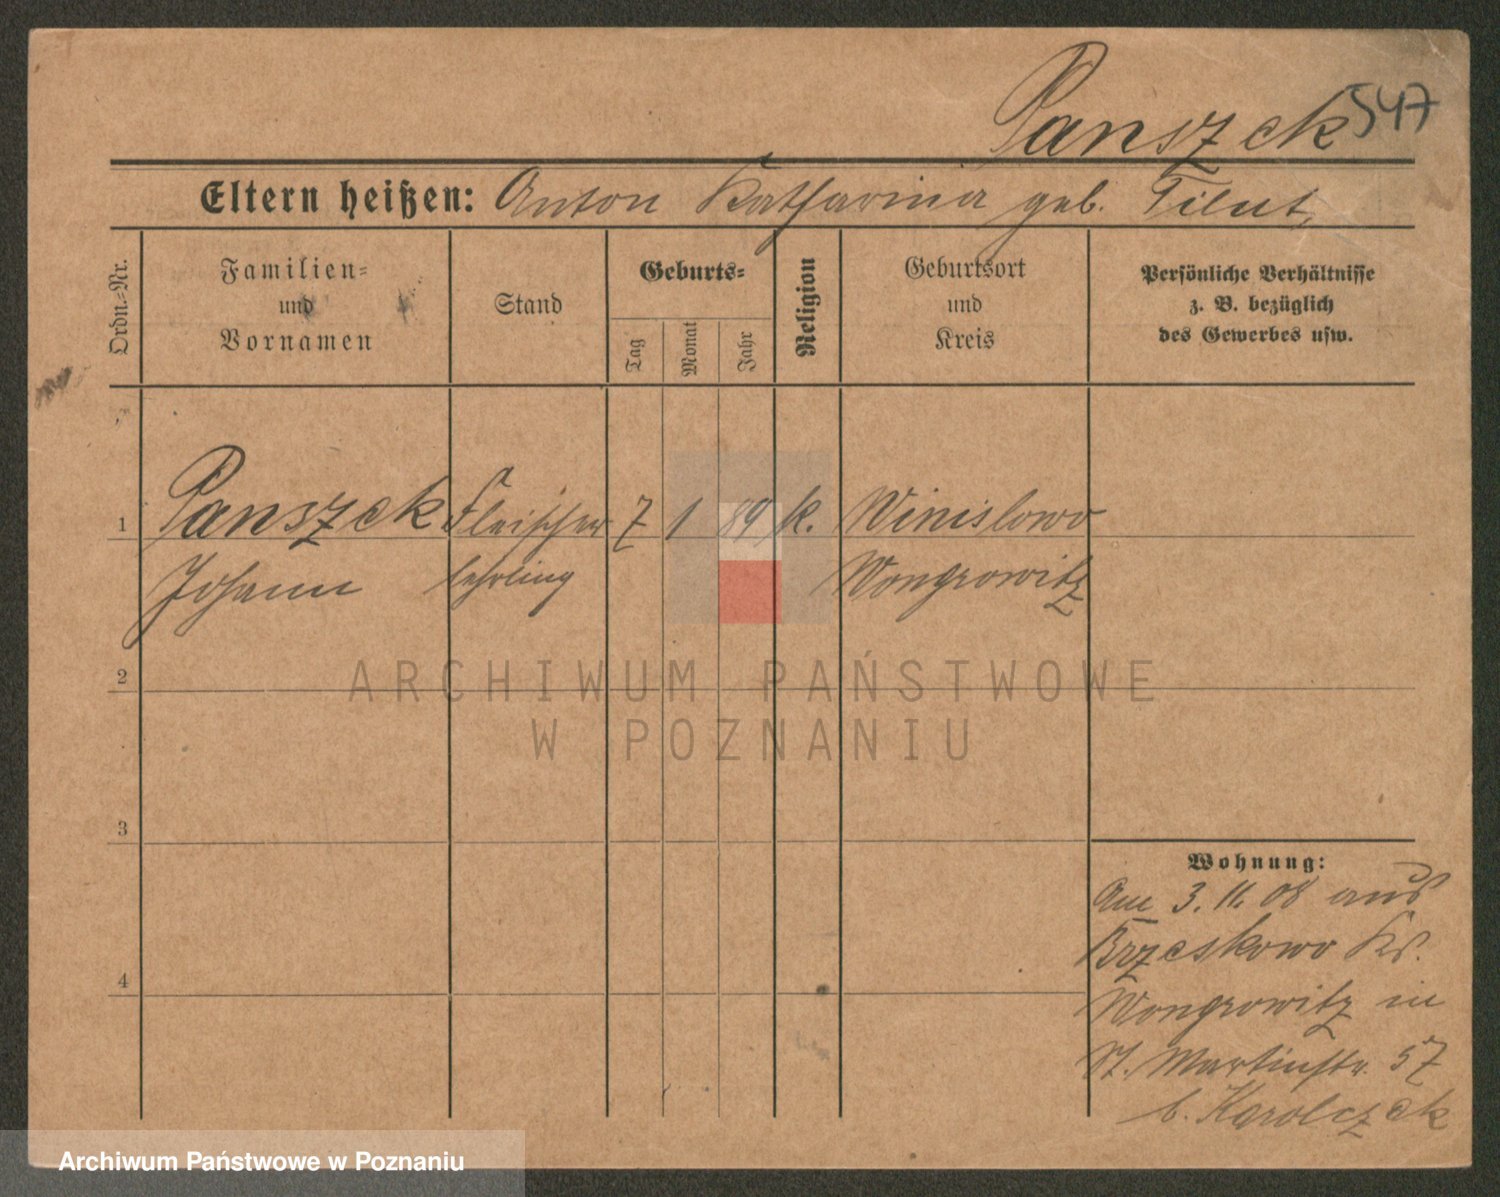 Panszck 547
Eltern heißen: Anton Katharina geb. Tilut,
Ordn.-Nr.
Familien- und Vornamen
Stand
Geburts-
Tag
Monat
Jahr
Religion
Geburtsort und Kreis
Persönliche Verhältnisse
z. B. bezüglich
des Gewerbes usw.
1 Panszck Fleischer 7 1 89 k. Winislowo
Johann lehrling Wongrowitz
ARCHIWUM PAŃSTWOWE
W POZNANIU
2
3
4
Wohnung:
Am 3.11.08 aus
Brzeskowo Kr.
Wongrowitz in
St. Martinstr. 57
b. Karolczak
Archiwum Państwowe w Poznaniu